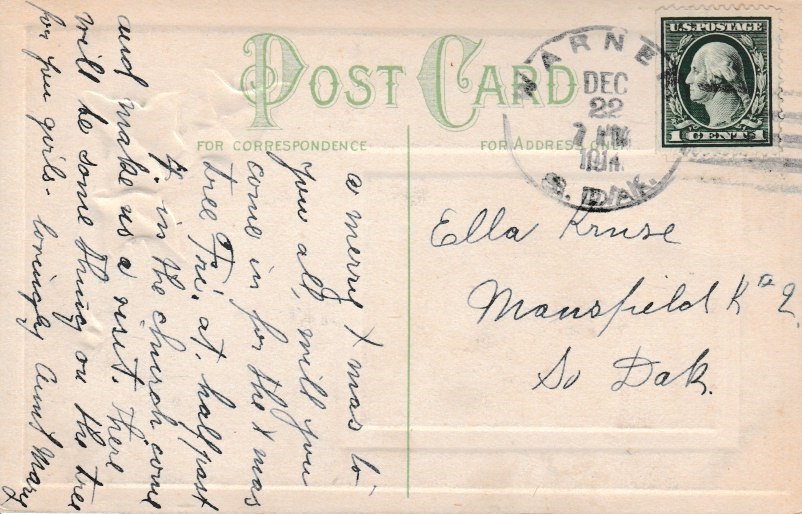 POST CARD
FOR CORRESPONDENCE
FOR ADDRESS ONLY
WARNER
DEC
22
S. DAK.
U.S. POSTAGE
1 CENT 1
a merry X mas to
you all, will you
come in for the X mas
tree Fri, at half past
7, in the church come
and make us a visit. There
will be some thing on the tree
for you girls - lovingly Aunt Mary
Ella Kruse
Mansfield R #2
So Dak.